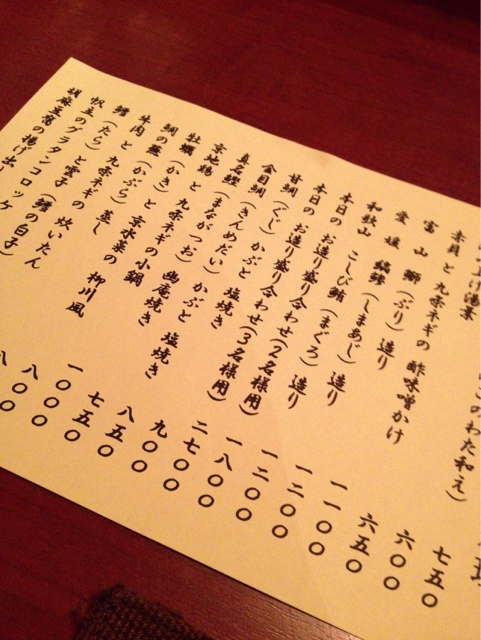 このわた和え） 七五〇
上げ湯葉 六〇〇
赤貝 と 九条ネギの 酢味噌かけ 六五〇
富山 鰤（ぶり）造り 一一〇〇
愛媛 縞鯵（しまあじ）造り 一二〇〇
和歌山 こしび鮪（まぐろ）造り 一二〇〇
本日の お造り盛り合わせ（2名様用） 一八〇〇
本日の お造り盛り合わせ（3名様用） 二七〇〇
甘鯛（ぐじ）かぶと 塩焼き 九〇〇
金目鯛（きんめだい）かぶと 塩焼き 八五〇
真名鰹（まながつお） 幽庵焼き 七五〇
京地鶏 と 九条ネギの小鍋 一〇〇〇
牡蠣（かき）と 京水菜の 柳川風 八〇〇
鯛の蕪（かぶら）蒸し 八〇〇
牛肉 と 九条ネギ の 炊いたん
鱈（たら）と雲子（鱈の白子）
帆立のグラタンコロッケ
胡麻豆腐の揚げ出し